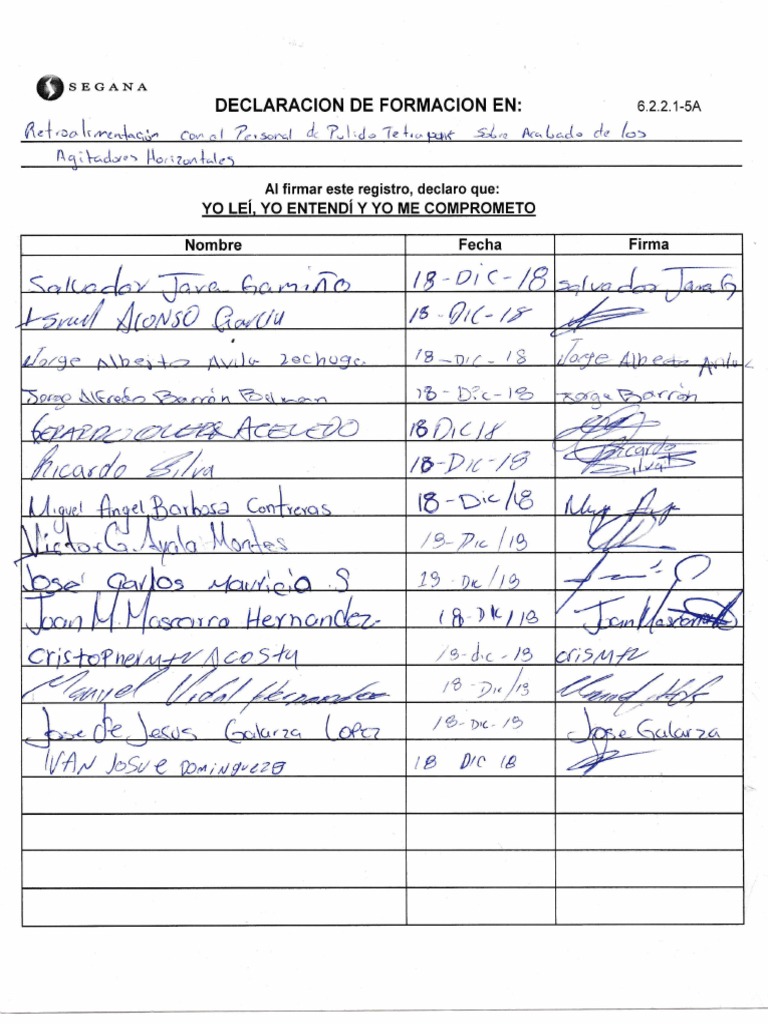 SEGANA
DECLARACION DE FORMACION EN: 6.2.2.1-5A
Retroalimentación con el Personal de Pulido Tetrapak Sobre Acabado de los
Agitadores Horizontales
Al firmar este registro, declaro que:
YO LEÍ, YO ENTENDÍ Y YO ME COMPROMETO
Nombre Fecha Firma
Salvador Jara Gamiño 18-DIC-18 Salvador Jara G
Alonso García 18-DIC-18
Jorge Alberto Avila Lechuga 18-DIC-18 Jorge Alberto Avila
Jorge Alfredo Barrón Belman 18-Dic-18 Jorge Barrón
GERARDO ACEVEDO 18 DIC 18
Ricardo Silva 18-Dic-18 Ricardo Silva
Miguel Angel Barbosa Contreras 18-Dic/18
Victor G. Ayala Montes 18-Dic/18
José Carlos Mauricio S 18-Dic/18
Juan M. Mascorro Hernandez 18-Dic/18 Juan
Cristopher Acosta 18-dic-18
Manuel Vidal Hernandez 18-Dic/18
Jose de Jesus Galarza Lopez 18-Dic-18 Jose Galarza
IVAN JOSUE DOMINGUEZ 18 DIC 18